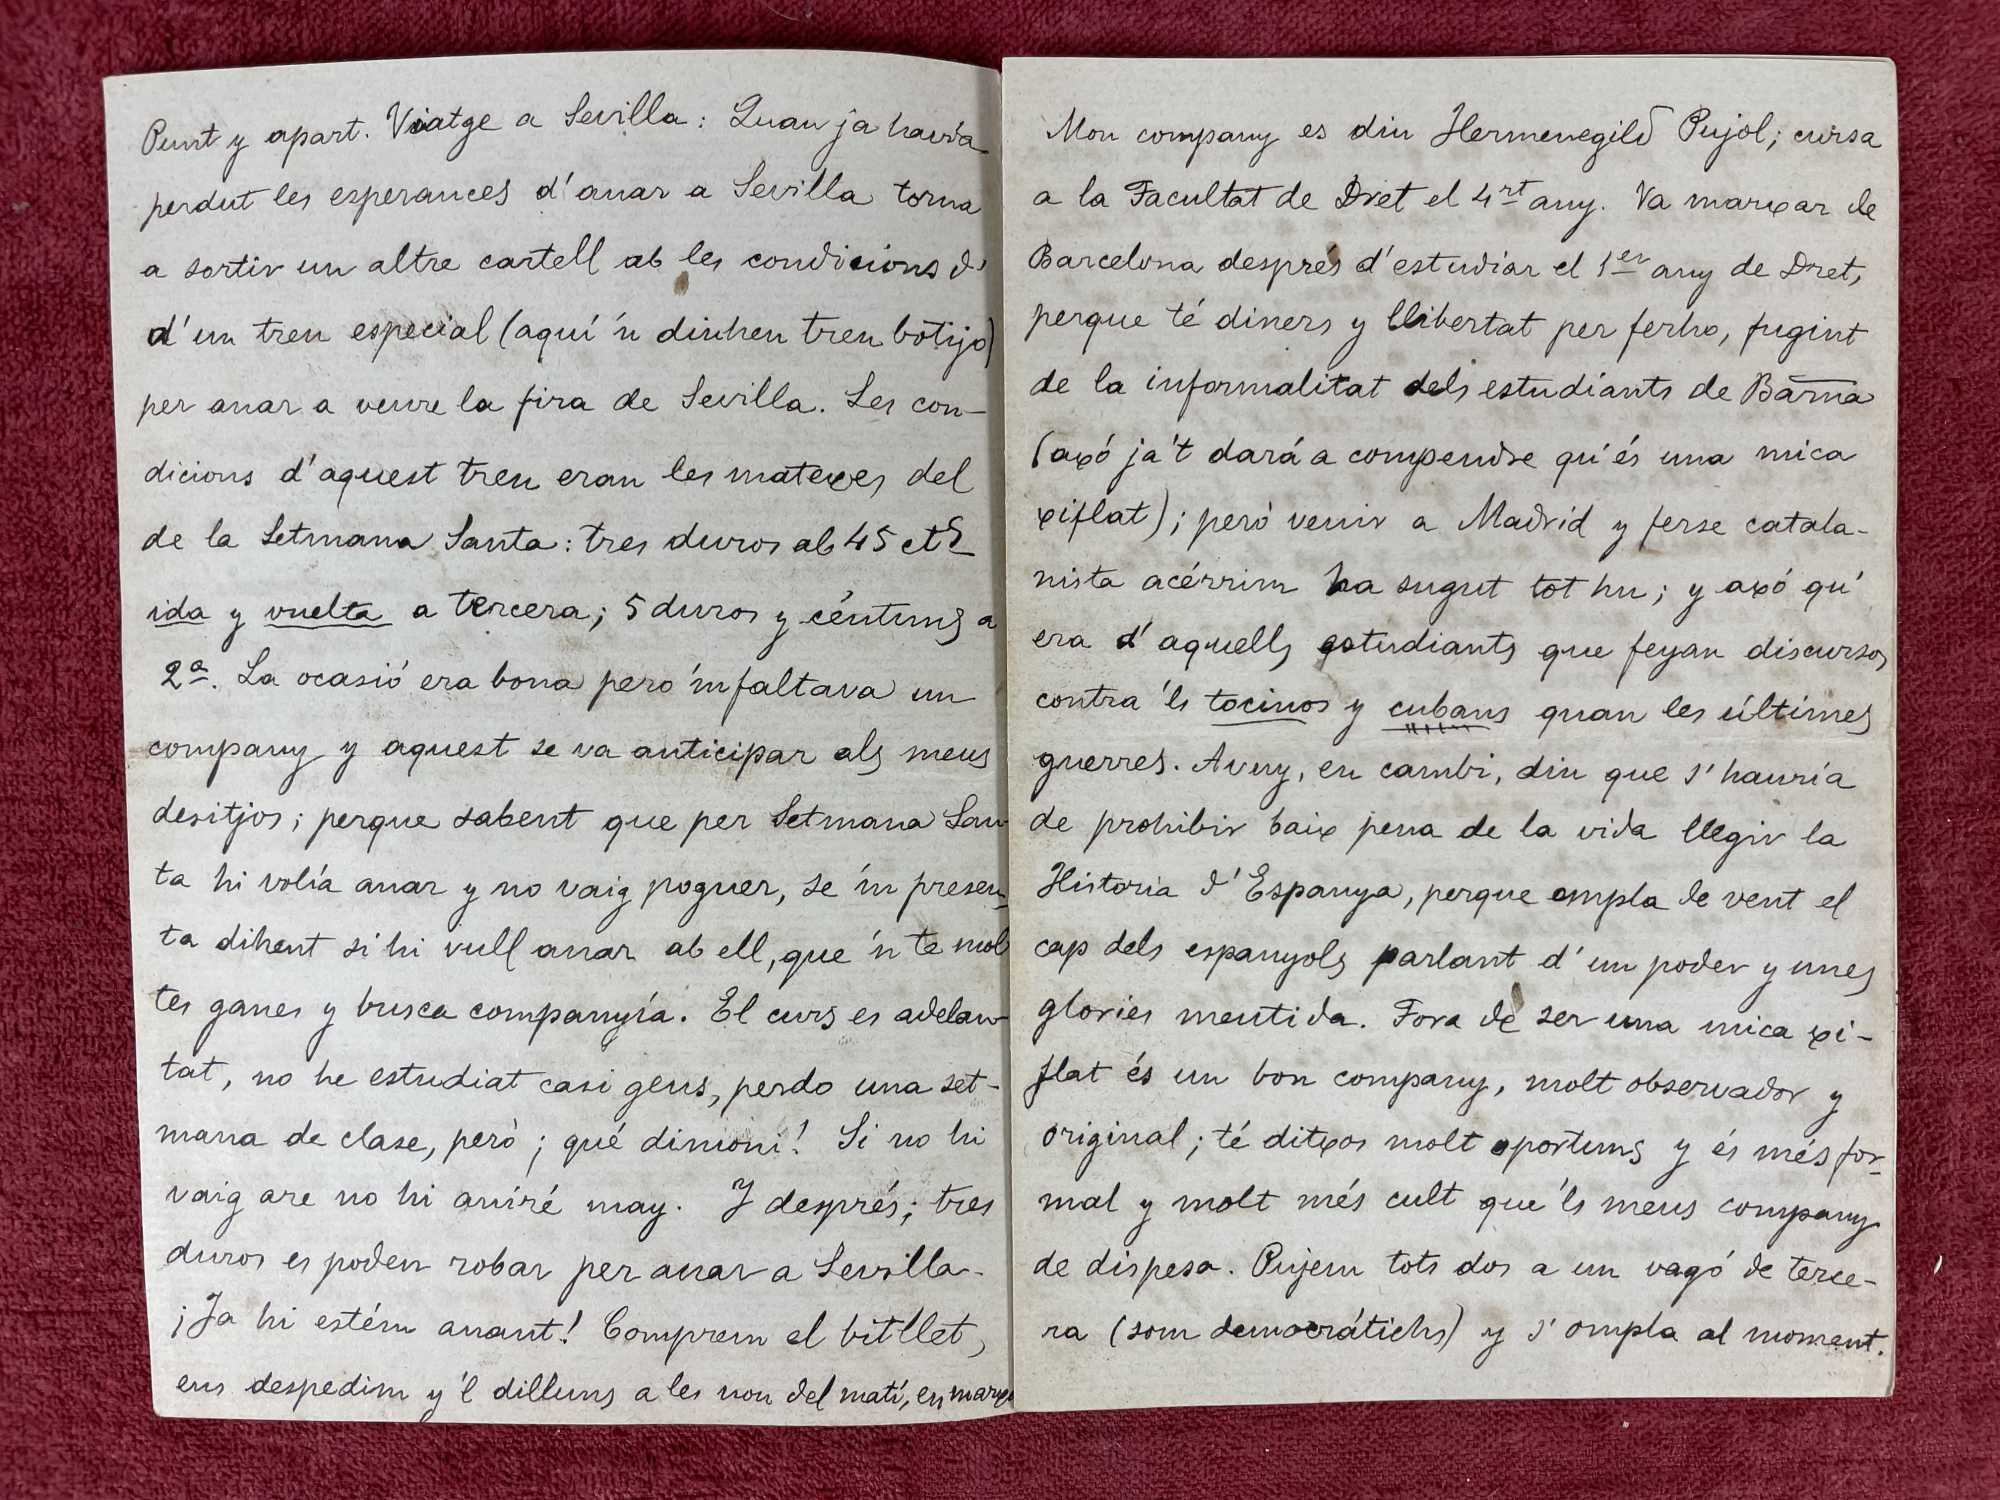 Punt y apart. Viatge a Sevilla: Quan ja havía
perdut les esperances d'anar a Sevilla torna
a sortir un altre cartell ab les condicions d'
d'un tren especial (aquí 'n diuhen tren botijo)
per anar a veure la fira de Sevilla. Les con-
dicions d'aquest tren eran les matexes del
de la Setmana Santa: tres duros ab 45 cts
ida y vuelta a tercera; 5 duros y céntims a
2ª. La ocasió era bona pero 'm faltava un
company y aquest se va anticipar als meus
desitjos; perque sabent que per Setmana San-
ta hi volía anar y no vaig poguer, se 'm presen-
ta dihent si hi vull anar ab ell, que 'n te mol
tes ganes y busca companyía. El curs es adelan-
tat, no he estudiat casi gens, perdo una set-
mana de clase, però ¡qué dimoni! Si no hi
vaig are no hi aniré may. Y després; tres
duros es poden robar per anar a Sevilla.
¡Ja hi estém anant! Comprem el bitllet,
ens despedim y 'l dilluns a les nou del matí, en marxa
Mon company es diu Hermenegild Pujol; cursa
a la Facultat de Dret el 4rt any. Va marxar de
Barcelona després d'estudiar el 1er any de Dret,
perque té diners y llibertat per ferho, fugint
de la informalitat dels estudiants de Barna
(axó ja't dará a compendre qu'és una mica
xiflat); però venir a Madrid y ferse catala-
nista acérrim ha sugut tot hu; y axó qu'
era d'aquells estudiants que feyan discursos
contra 'ls tocinos y cubans quan les últimes
guerres. Avuy, en cambi, diu que s'hauría
de prohibir baix pena de la vida llegir la
Historia d'Espanya, perque ompla de vent el
cap dels espanyols parlant d'un poder y unes
glories mentida. Fora de ser una mica xi-
flat és un bon company, molt observador y
original; té ditxos molt oportuns y és més for-
mal y molt més cult que 'ls meus company
de dispesa. Pujem tots dos a un vagó de terce-
ra (som democrátichs) y s'ompla al moment.